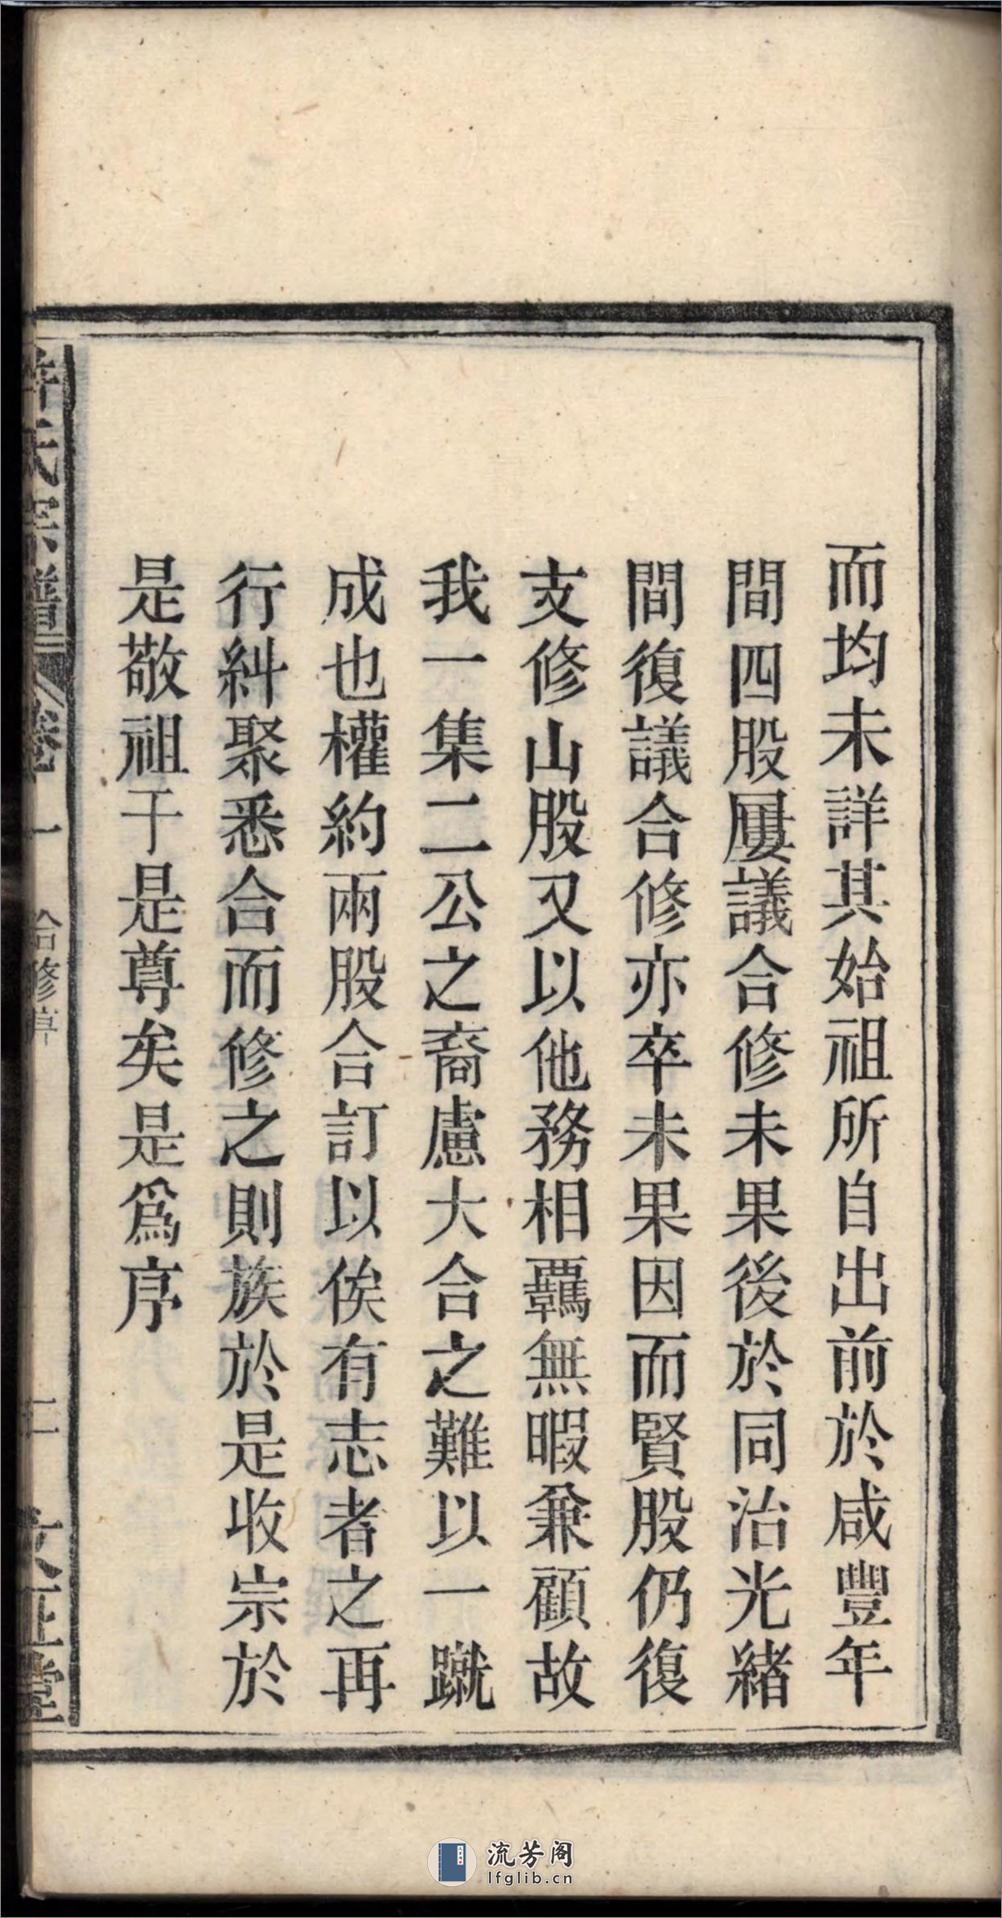 而均未詳其始祖所自出前於咸豐年
間四股屢議合修未果後於同治光緒
間復議合修亦卒未果因而賢股仍復
支修山股又以他務相羈無暇兼顧故
我一集二公之裔慮大合之難以一蹴
成也權約兩股合訂以俟有志者之再
行糾聚悉合而修之則族於是收宗於
是敬祖于是尊矣是爲序
氏宗譜 卷一 合修 二
流芳阁
lfglib.cn